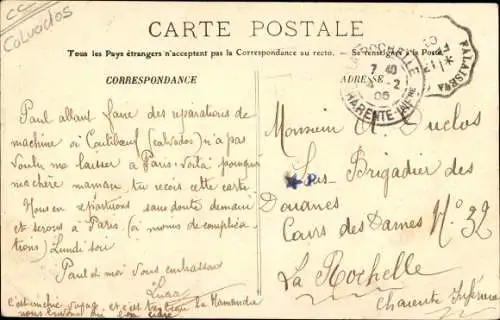 CC
Calvados
CARTE POSTALE
Tous les Pays étrangers n'acceptent pas la Correspondance au recto. — Se renseigner à la Poste
CORRESPONDANCE
ADRESSE
LA ROCHELLE
7 40
4 - 2
06
CHARENTE INFRE
FALAISE
Paul allant faire des réparations de
machine à (calvados) n'a pas
voulu me laisser à Paris. voilà pourquoi
ma chère maman tu reçois cette carte
Nous en repartirons sans doute demain
et serons à Paris (à moins de complica-
tions) Lundi soir
Paul et moi vous embrassons
c'est
Monsieur Duclos
Sous Brigadier des
Douanes
Cours des Dames No. 32
La Rochelle
Charente Inférieure